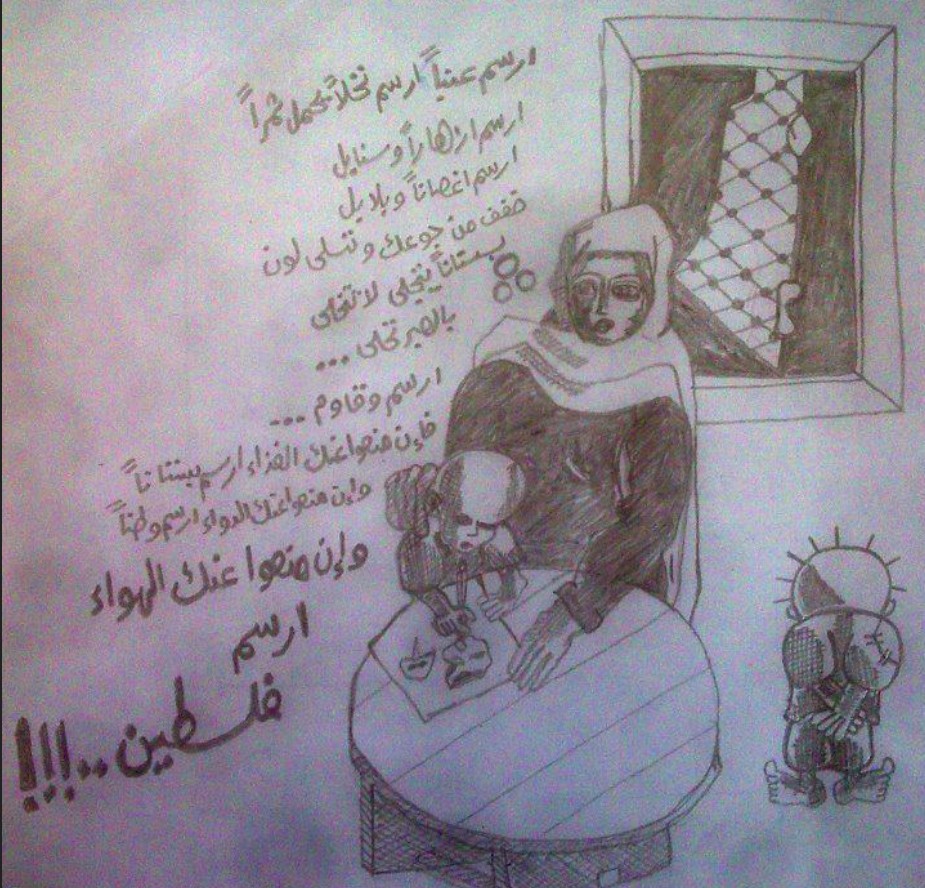 ارسم عنباً ارسم نخلاً يحمل ثمراً
ارسم ازهاراً وسنابل
ارسم اغصاناً وبلابل
خفف من جوعك وتسلى لون
بستاناً يتجلى لا تتخلى
بالصبر تحلى ...
ارسم وقاوم ...
فإن منعوا عنك الغذاء ارسم بستاناً
وإن منعوا عنك الدواء ارسم وطناً
وإن منعوا عنك الهواء
ارسم
فلسطين ..!!!